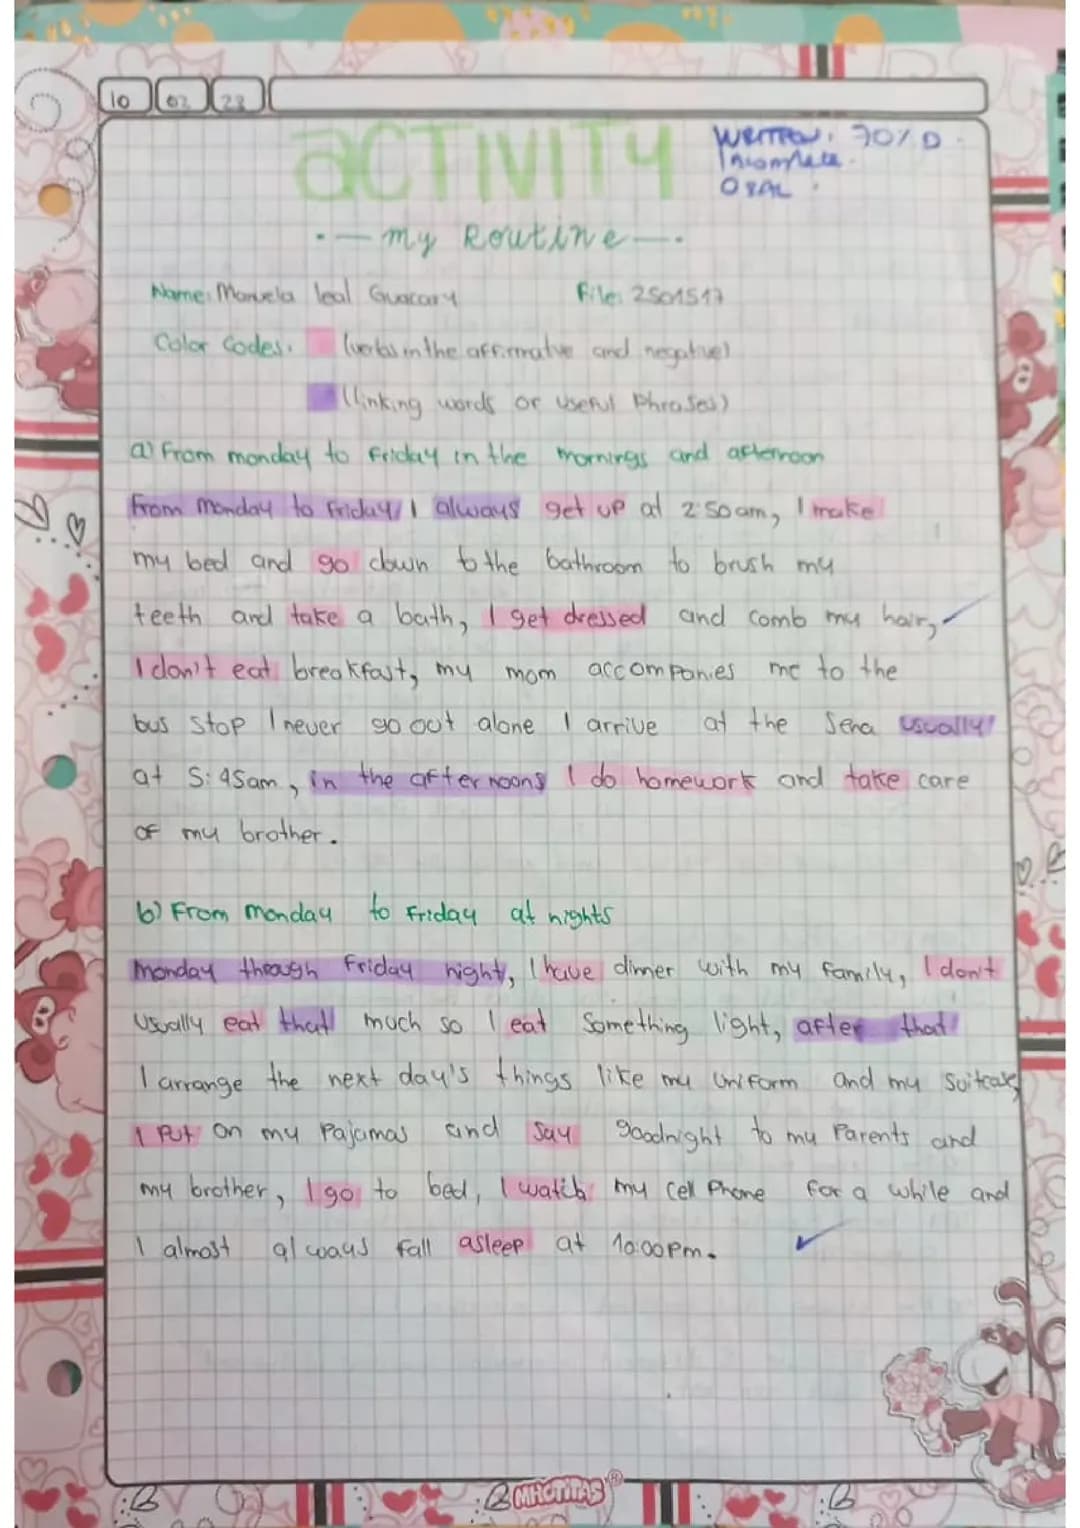 10 02 23
aCTIVITY
WRITTEN: 70% D.
Incomplete.
ORAL :
.— my Routine —.
Name: Manuela leal Guacary File: 2501517
Color Codes: (verbs in the affirmative and negative)
(linking words or useful Phrases)
a) From monday to Friday in the mornings and afternoon
From Monday to Friday I always get up at 2:50am, I make
my bed and go down to the bathroom to brush my
teeth and take a bath, I get dressed and comb my hair,
I don't eat breakfast, my mom accompanies me to the
bus stop I never go out alone I arrive at the Sena usually
at 5:45am, in the afternoons I do homework and take care
of my brother.
b) From monday to Friday at nights
Monday though Friday night, I have dinner with my family, I don't
Usually eat that much so I eat Something light, after that
I arrange the next day's things like my Uniform and my Suitcase,
I Put on my Pajamas and Say goodnight to my Parents and
my brother, I go to bed, I watch my Cell Phone for a while and
I almost always fall asleep at 10:00Pm.
MHOTITAS